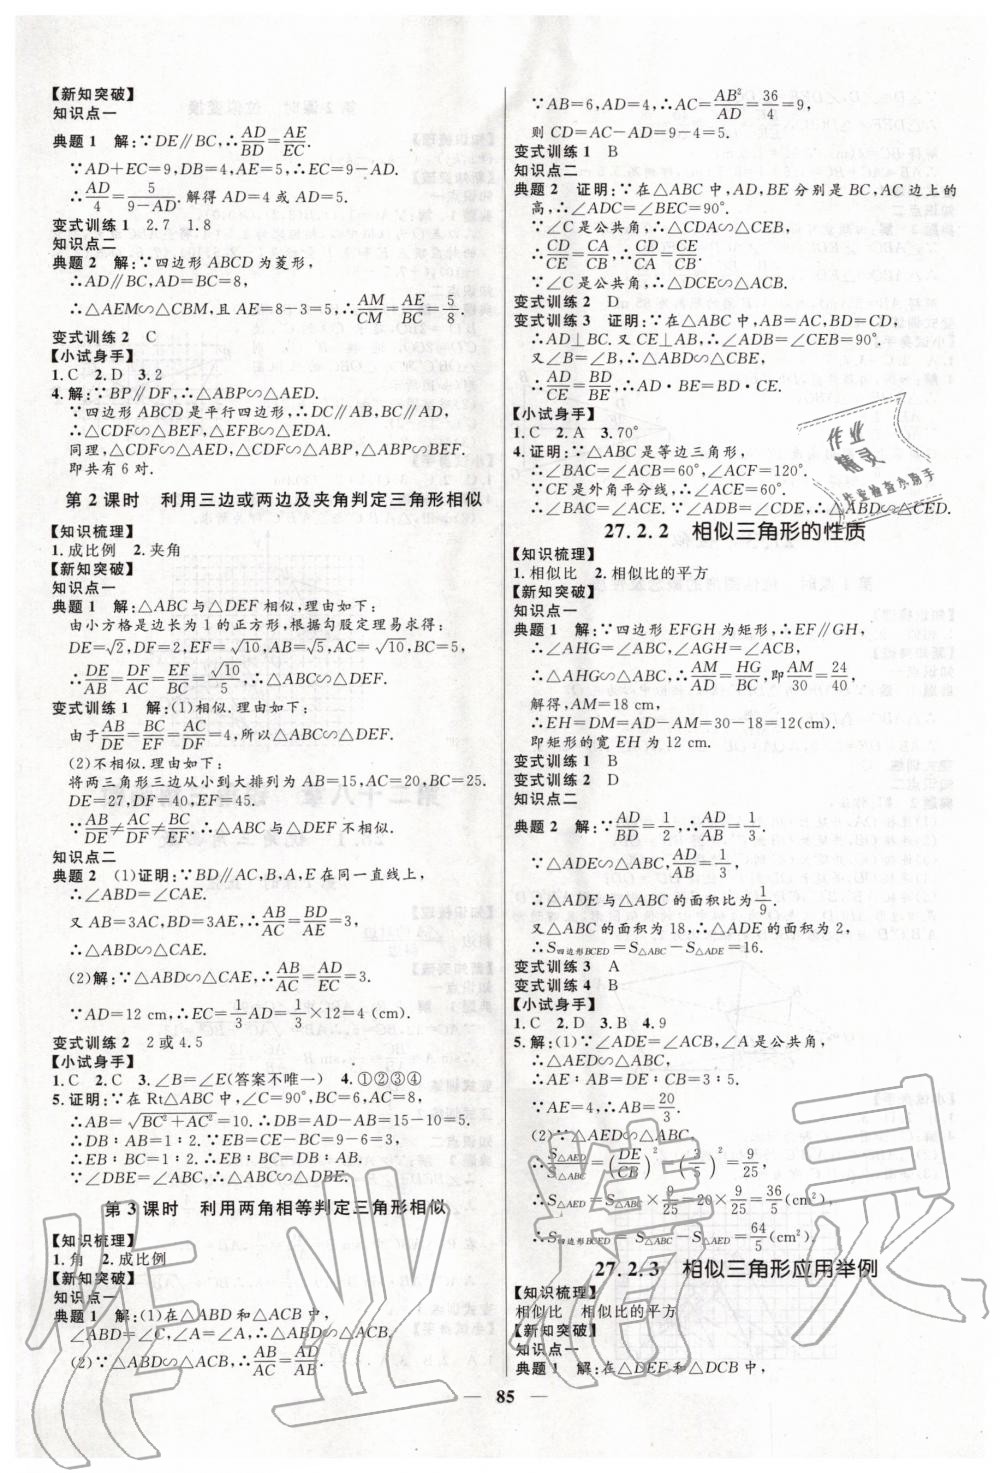 【新知突破】
知识点一
典题1 解:∵DE∥BC,∴AD/BD=AE/EC.
∵AD+EC=9,DB=4,AE=5,∴EC=9-AD.
∴AD/4=5/(9-AD).解得AD=4或AD=5.
变式训练1 2.7 1.8
知识点二
典题2 解:∵四边形ABCD为菱形,
∴AD∥BC,AD=BC=8,
∴△AEM∽△CBM,且AE=8-3=5,∴AM/CM=AE/BC=5/8.
变式训练2 C
【小试身手】
1.C 2.D 3.2
4.解:∵BP∥DF,∴△ABP∽△AED.
∵四边形ABCD是平行四边形,∴DC∥AB,BC∥AD,
∴△CDF∽△BEF,△EFB∽△EDA.
同理,△CDF∽△AED,△CDF∽△ABP,△ABP∽BEF.
即共有6对.
第2课时 利用三边或两边及夹角判定三角形相似
【知识梳理】
1.成比例 2.夹角
【新知突破】
知识点一
典题1 解:△ABC与△DEF相似,理由如下:
由小方格是边长为1的正方形,根据勾股定理易求得:
DE=√2,DF=2,EF=√10,AB=√5,AC=√10,BC=5,
∴DE/AB=DF/AC=EF/BC=√10/5,∴△ABC∽△DEF.
变式训练1 解:(1)相似.理由如下:
由于AB/DE=BC/EF=AC/DF=4,所以△ABC∽△DEF.
(2)不相似.理由如下:
将两三角形三边从小到大排列为AB=15,AC=20,BC=25.
DE=27,DF=40,EF=45.
∵AB/DE≠AC/DF≠BC/EF.∴△ABC与△DEF不相似.
知识点二
典题2 (1)证明:∵BD∥AC,B,A,E在同一直线上,
∴∠ABD=∠CAE.
又AB=3AC,BD=3AE,∴AB/AC=BD/AE=3,
∴△ABD∽△CAE.
(2)解:∵△ABD∽△CAE,∴AB/AC=AD/EC=3.
∵AD=12 cm,∴EC=1/3AD=1/3×12=4(cm).
变式训练2 2或4.5
【小试身手】
1.C 2.C 3.∠B=∠E(答案不唯一) 4.①②③④
5.证明:∵在Rt△ABC中,∠C=90°,BC=6,AC=8,
∴AB=√(BC²+AC²)=10.∴DB=AD-AB=15-10=5.
∴DB∶AB=1∶2.又∵EB=CE-BC=9-6=3,
∴EB∶BC=1∶2.∴EB∶BC=DB∶AB.
又∵∠DBE=∠ABC,∴△ABC∽△DBE.
第3课时 利用两角相等判定三角形相似
【知识梳理】
1.角 2.成比例
【新知突破】
知识点一
典题1 解:(1)在△ABD和△ACB中,
∠ABD=∠C,∠A=∠A,∴△ABD∽△ACB.
(2)∵△ABD∽△ACB,∴AB/AC=AD/AB.
∵AB=6,AD=4,∴AC=AB²/AD=36/4=9,
则CD=AC-AD=9-4=5.
变式训练1 B
知识点二
典题2 证明:∵在△ABC中,AD,BE分别是BC,AC边上的
高,∴∠ADC=∠BEC=90°.
∵∠C是公共角,∴△CDA∽△CEB,
∴CD/CE=CA/CB,∴CD/CA=CE/CB.
∵∠C是公共角,∴△DCE∽△ACB.
变式训练2 D
变式训练3 证明:∵在△ABC中,AB=AC,BD=CD,
∴AD⊥BC.又CE⊥AB,∴∠ADB=∠CEB=90°.
又∠B=∠B,∴△ABD∽△CBE,
∴AD/CE=BD/BE,∴AD·BE=BD·CE.
【小试身手】
1.C 2.A 3.70°
4.证明:∵△ABC是等边三角形,
∴∠BAC=∠ACB=60°,∠ACF=120°.
∵CE是外角平分线,∴∠ACE=60°.
∴∠BAC=∠ACE.又∠ADB=∠CDE,∴△ABD∽△CED.
27.2.2 相似三角形的性质
【知识梳理】
1.相似比 2.相似比的平方
【新知突破】
知识点一
典题1 解:∵四边形EFGH为矩形,∴EF∥GH,
∴∠AHG=∠ABC,∠AGH=∠ACB,
∴△AHG∽△ABC,∴AM/AD=HG/BC,即AM/30=24/40,
解得,AM=18 cm,
∴EH=DM=AD-AM=30-18=12(cm).
即矩形的宽EH为12 cm.
变式训练1 B
变式训练2 D
知识点二
典题2 解:∵AD/BD=1/2,∴AD/AB=1/3.
∵△ADE∽△ABC,AD/AB=1/3,
∴△ADE与△ABC的面积比为1/9.
又△ABC的面积为18,∴△ADE的面积为2,
∴S四边形BCED=S△ABC-S△ADE=16.
变式训练3 A
变式训练4 B
【小试身手】
1.C 2.D 3.B 4.9
5.解:(1)∵∠ADE=∠ACB,∠A是公共角,
∴△AED∽△ABC,
∴AE∶AB=DE∶CB=3∶5.
∵AE=4,∴AB=20/3.
(2)∵△AED∽△ABC,
∴S△AED/S△ABC=(DE/CB)²=(3/5)²=9/25,
∴S△AED=S△ABC×9/25=20×9/25=36/5(cm²),
∴S四边形BCED=S△ABC-S△AED=64/5(cm²).
27.2.3 相似三角形应用举例
【知识梳理】
相似比 相似比的平方
【新知突破】
知识点一
典题1 解:在△DEF和△DCB中,
85
作业
精灵
作业检查小助手
作业精灵